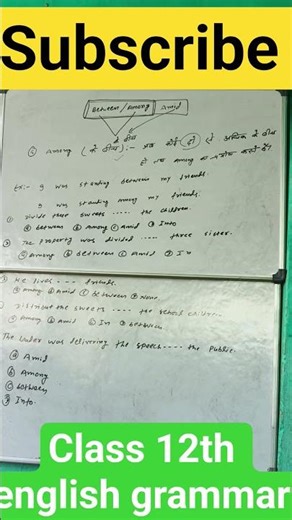 Subscribe
Between/Among Amid
के बीच
Among (के बीच) :- जब कोई दो से अधिक के बीच
हो तब among का प्रयोग करते हैं।
Ex:- I was standing between my friends.
I was standing among my friends.
① Divide these sweets ..... the children.
Ⓐ between Ⓑ Among Ⓒ Amid Ⓓ Into
② The property was divided ..... three sister.
Ⓐ Among Ⓑ between Ⓒ Amid Ⓓ In
He lives .... friends.
Among Ⓑ Amid Ⓒ between Ⓓ None
Distribute the sweets ..... the school children.
Among Ⓑ Amid Ⓒ In Ⓓ between
The leader was delivering the speech .... the public.
Ⓐ Amid
Ⓑ Among
Ⓒ between
Ⓓ Into.
Class 12th
english grammar